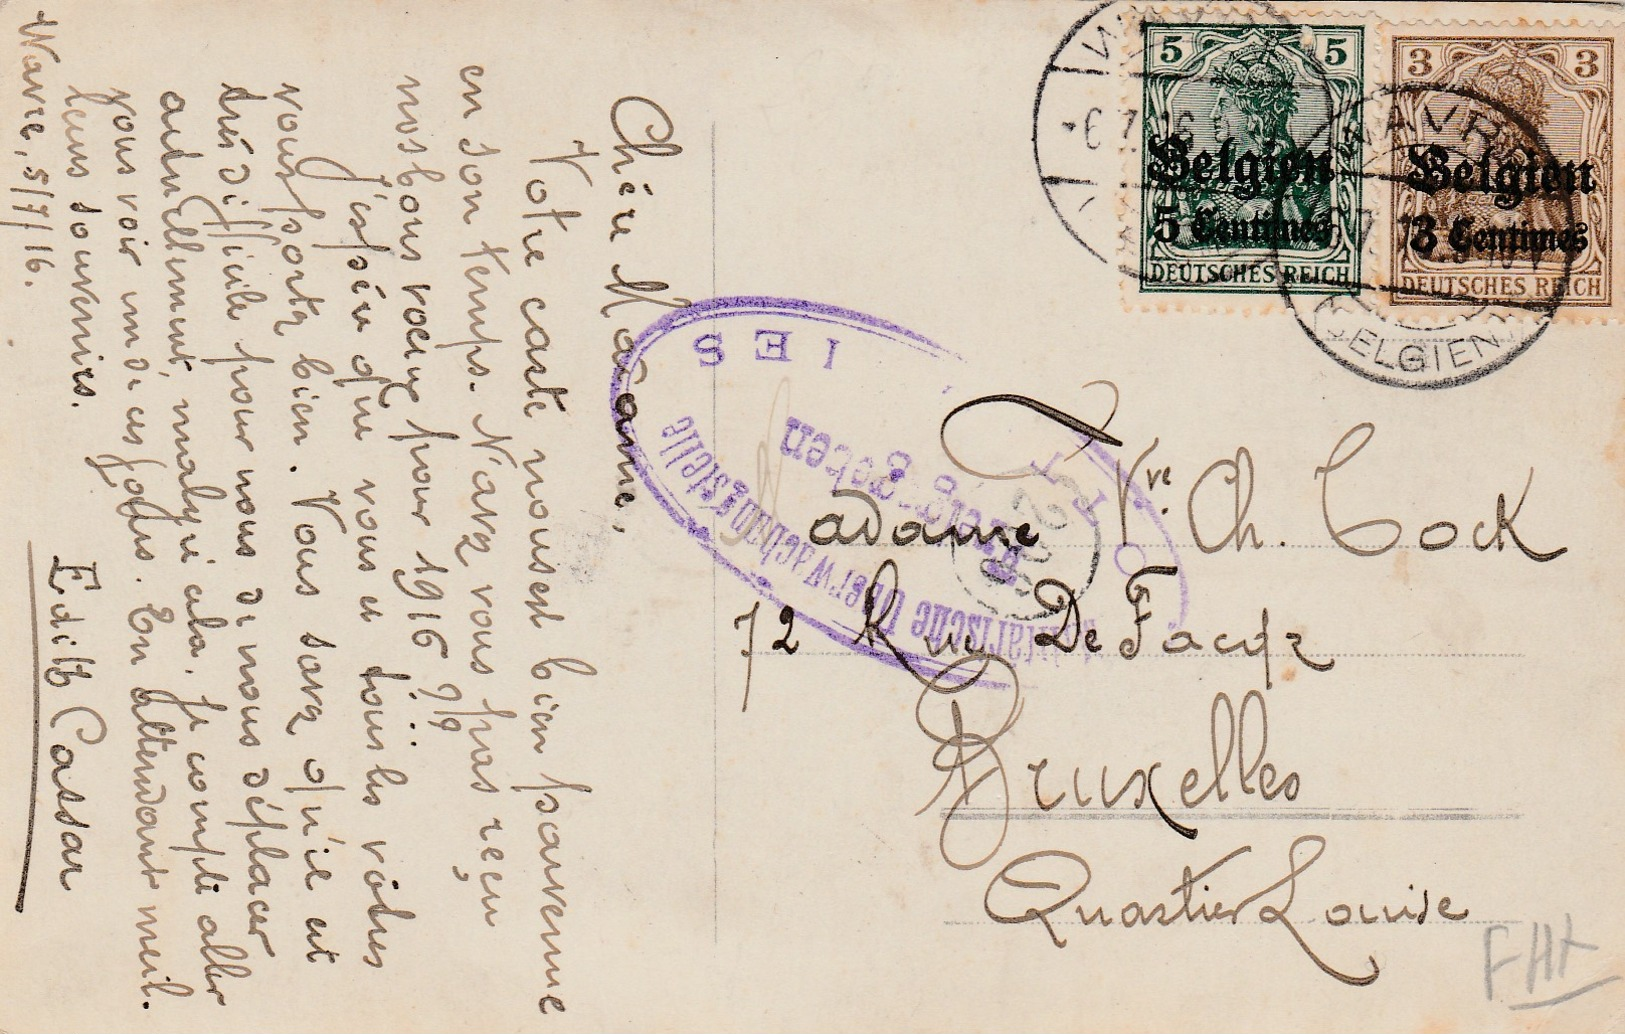 Wavre, 5/7/16.
Chère Madame,
Votre carte nous est bien parvenue
en son temps. N'avez vous pas reçu
nos bons voeux pour 1916 ?
J'espère que vous et tous les vôtres
vous portez bien. Vous savez qu'il est
très difficile pour nous de nous déplacer
actuellement, malgré cela, je compte aller
vous voir un de ces jours. En attendant meil.
leurs souvenirs.
Edith Cassar
5 5
Belgien
5 Centimes
DEUTSCHES REICH
3 3
Belgien
3 Centimes
DEUTSCHES REICH
-6.7.16
WAVRE
BELGIEN
Militärische Überwachungsstelle
freigegeben
OTTIGNIES
Madame Vve Ch. Cock
72 Rue De Facqz
Bruxelles
Quartier Louise
FHt